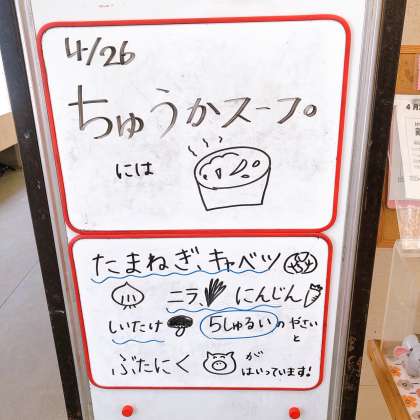 4/26
ちゅうかスープ。
には
たまねぎ、キャベツ
ニラ、にんじん
しいたけ 5しゅるいのやさいと
ぶたにく が はいっています!
4月